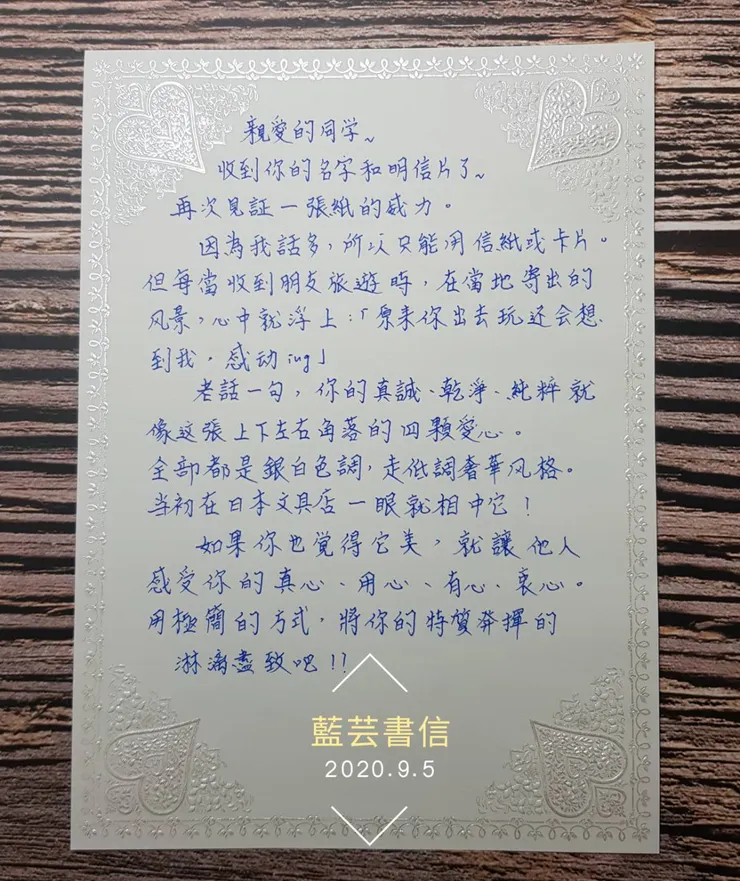 親愛的同学~
收到你的名字和明信片了~
再次見証一張紙的威力。
因為我話多，所以只能用信紙或卡片。
但每當收到朋友旅遊時，在當地寄出的
风景，心中就浮上：「原来你出去玩还会想
到我，感动ing」
老話一句，你的真誠、乾淨、純粹就
像这張上下左右角落的四顆愛心。
全部都是銀白色調，走低調奢華风格。
当初在日本文具店一眼就相中它！
如果你也覚得它美，就讓他人
感受你的真心、用心、有心、衷心。
用極簡的方式，將你的特質発揮的
淋漓盡致吧！！
藍芸書信
2020.9.5